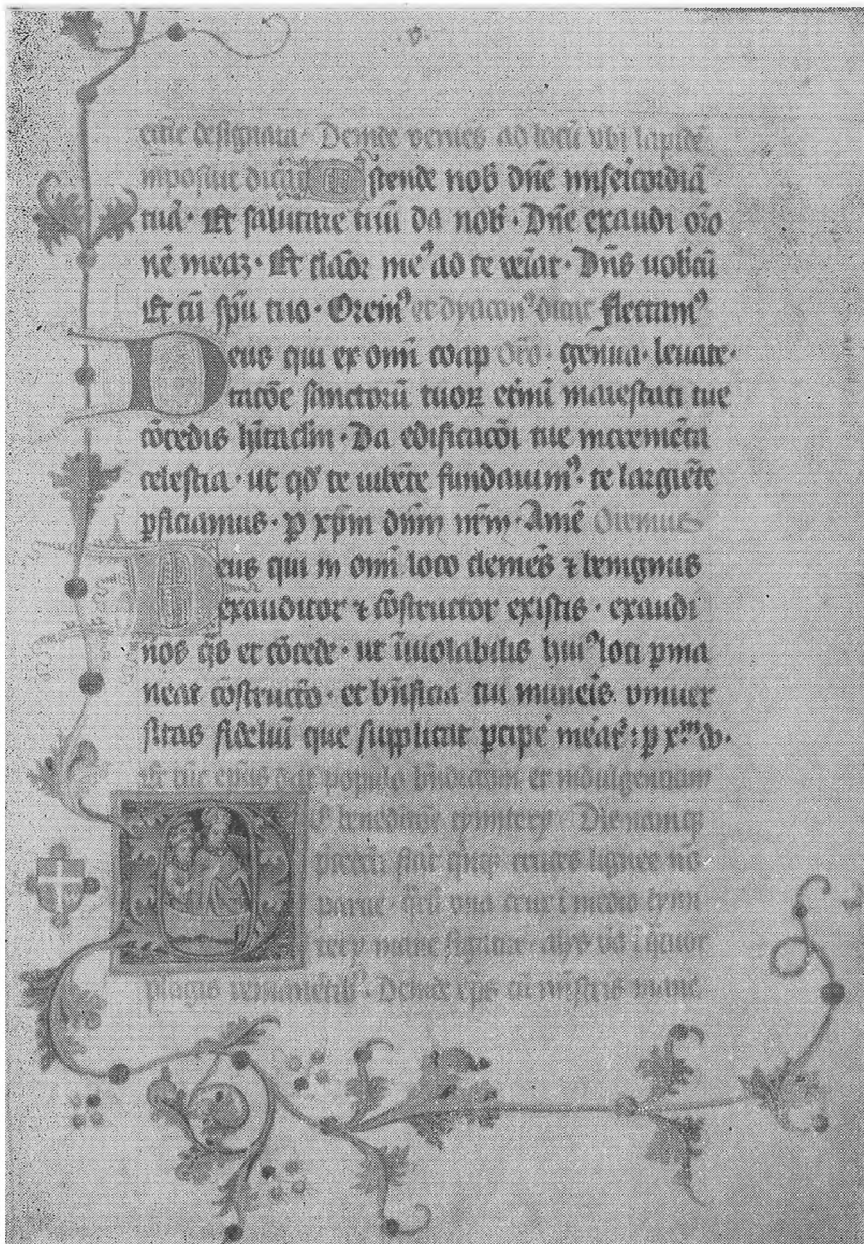 tue designata · Deinde venies ad locū vbi lapidē
imposiue dicat Ostende nob̄ dn̄e misericordiā
tuā · Et salutare tuū da nob̄ · Dn̄e exaudi oro
nē meaz · Et clāor meꝰ ad te veīat · Dn̄s uobicū
Et cū spū tuo · Oremꝰ et dyaconꝰ dicat flectamꝰ
Deus qui ex omī coap oro · genua · leuate ·
tacōe sanctorū tuoꝝ et̄ni maiestati tue
cōcedis h̄itaclm · Da edificacōi tue incremēta
celestia · ut qd̄ te iubēte fundauimꝰ · te largiēte
ꝑficiamus · ꝑ xp̄m dn̄m nr̄m · Amē Oremus
Deus qui in omī loco clemēs ⁊ benignus
exauditor ⁊ cōstructor existis · exaudi
nos q̄s et cōcede · ut īuiolabilis huiꝰ loci ꝑma
neat cōstructō · et bn̄ficia tui muneīs vniuer
sitas fideliū que supplicat ꝑcipe meāt : ꝑ xᵐ dō ·
Et tūc ep̄us dat populo bn̄dictōm et indulgentiam
benedictōe cymitery Die namqꝫ
stāt cruces lignee nō
parue · vna cruc ī medio cymi
tery
plagis Deinde ep̄s cū mīstris mane